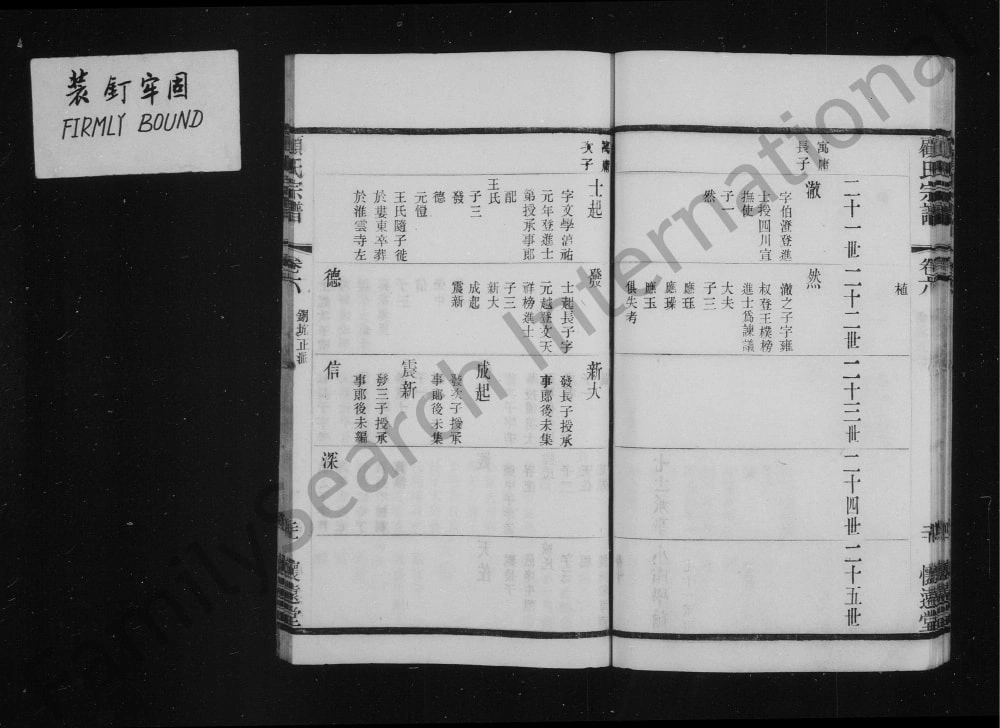 装釘牢固
FIRMLY BOUND
顧氏宗譜
卷六
懷遠堂
植
二十一世
二十二世
二十三世
二十四世
二十五世
寓庸
長子
澈
字伯澄登進
士授四川宣
撫使
子一
然
然
澈之子字雍
叔登王樸榜
進士爲諫議
大夫
子三
應玨
應瑮
應玉
俱失考
寓庸
次子
士起
字文學淳祐
元年登進士
弟授承事郎
配
王氏
子三
發
德
元愷
王氏隨子徙
於婁東卒葬
於淮雲寺左
發
士起長子字
元越登文天
祥榜進士
子三
新大
成起
震新
德
新大
發長子授承
事郎後未集
成起
發次子授承
事郎後未集
震新
發三子授承
事郎後未編
信
深
顧氏宗譜
卷六
懷遠堂
FamilySearch International